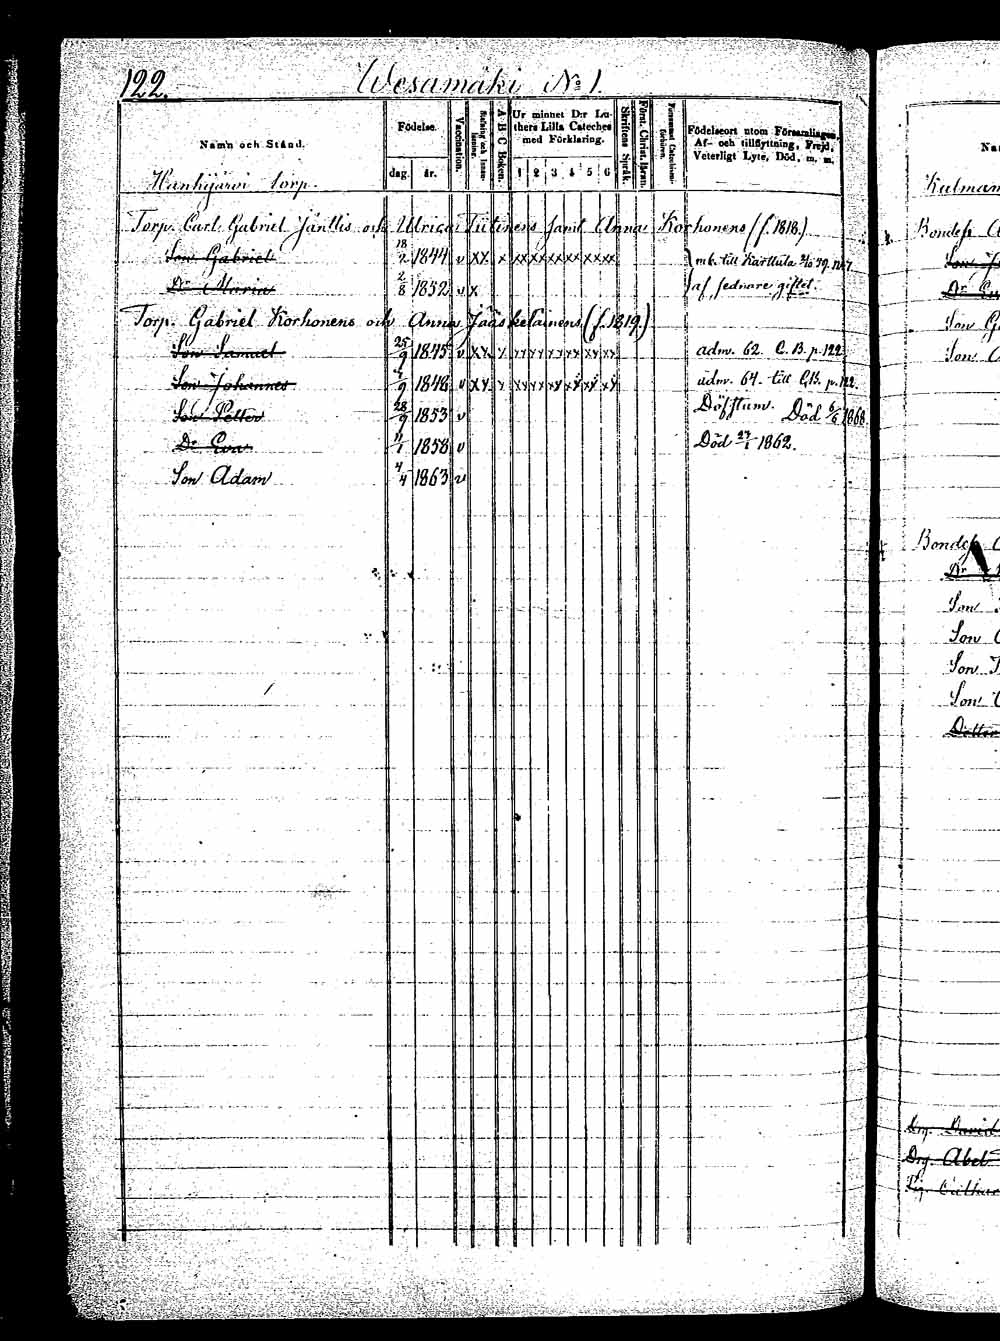 122.
Wesamäki No 1.
Namn och Stånd.
Födelse.
dag. år.
Vaccination.
A B C Boken.
Ur minnet D:r Luthers Lilla Cateches med Förklaring.
1 2 3 4 5 6
Skriftens Språk.
Först. Christ. lufran.
Födelseort utom Församlingen, Af- och tillflyttning, Frejd, Veterligt Lyte, Död, m. m.
Hankijärvi torp.
Torp. Carl Gabriel Jäntlis och Ulrica Tiitinens samt Anna Korhonens (f. 1818.)
Son Gabriel 18/2 1844 v xx x xxxxxxxxxxxx mb. till Karttula
Dr Maria 2/8 1852 v x af sednare giftet.
Torp. Gabriel Korhonens och Anna Jääskelainens (f. 1819.)
Son Samuel 25/9 1845 v xx x xxxxxxxxxxxx adm. 62. C. B. p. 122
Son Johannes 1/9 1848 v xx x xxxxxxxxxxxx adm. 64. till C.B. p. 122.
Son Petter 28/9 1853 v Döfstum. Död 6/6 1868.
Dr Eva 11/1 1858 v Död 27/1 1862.
Son Adam 4/4 1863 v
Bonde
Son
Dr
Son
Son
Bonde
Dr
Son
Son
Son
Son
Dotter
Drg. David
Drg. Abel